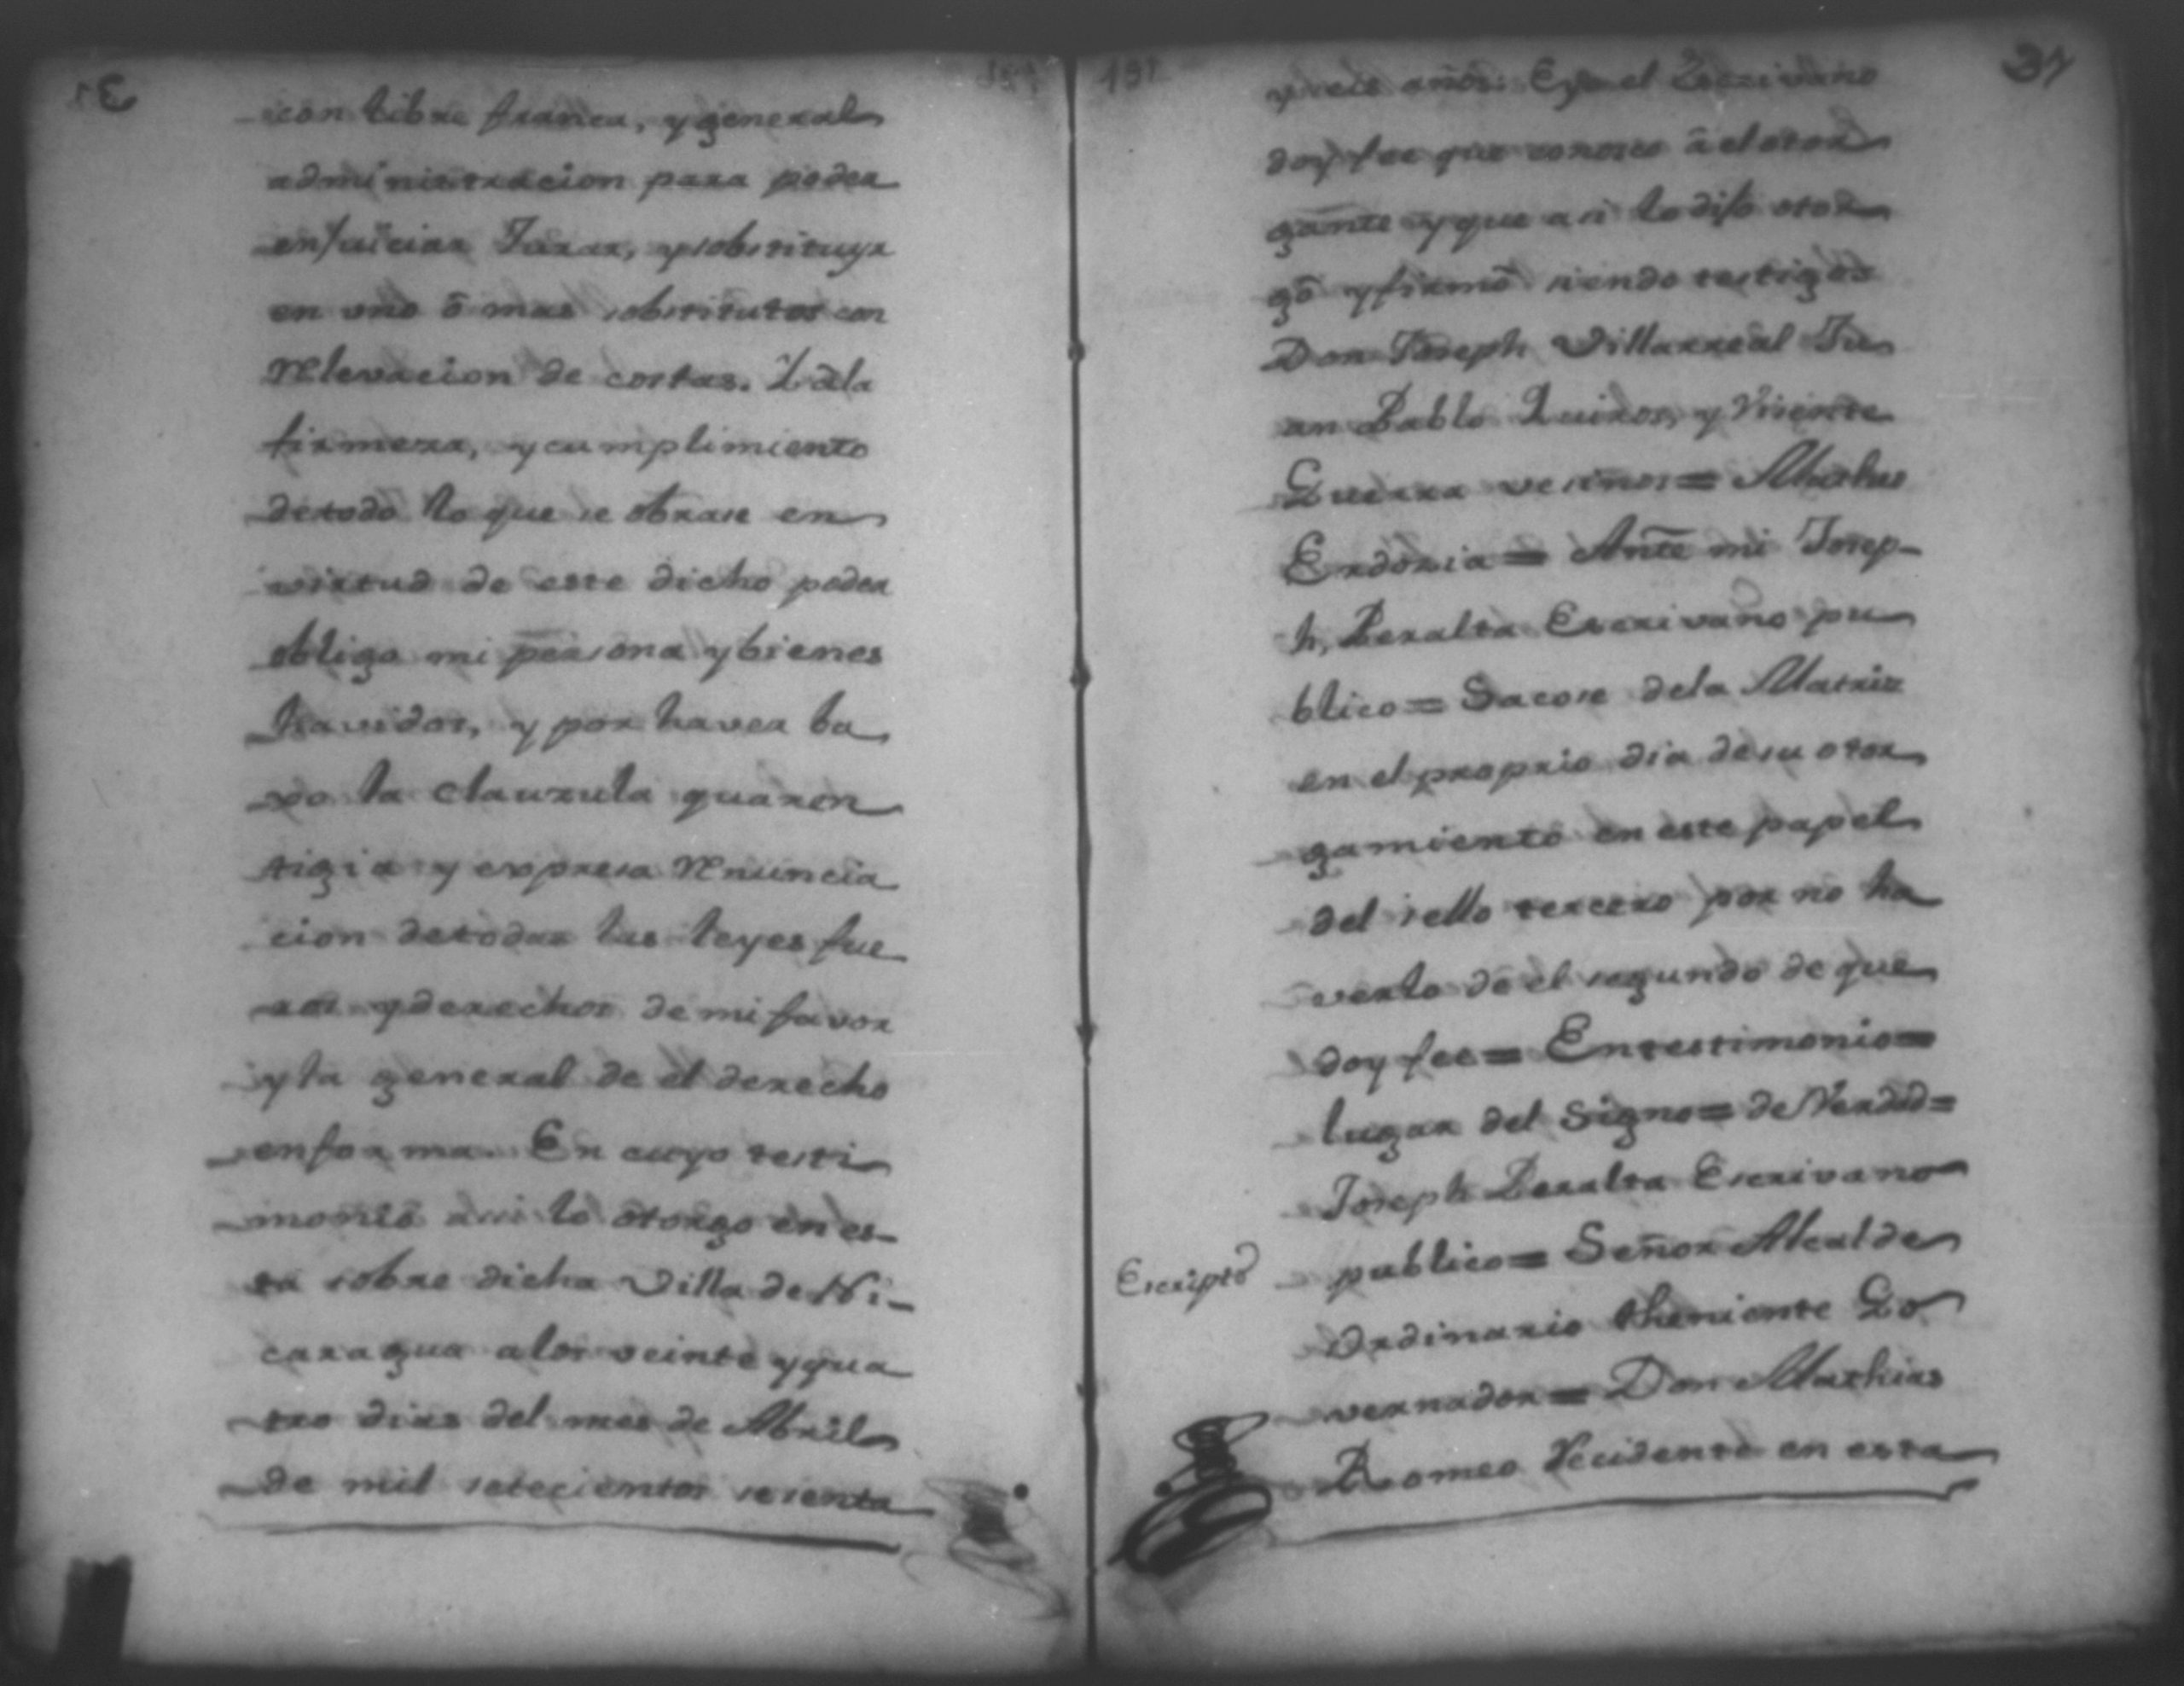 con libre franca, y general
administracion para poder
enjuiciar Jurar, y sobstituyr
en uno ô mas sobstitutos con
relevacion de costas. Y âla
firmeza, y cumplimiento
detodo lo que se obrase en
virtud de este dicho poder
obligo mi persona y bienes
havidos, y por haver ba
xo la clauzula guaren
tigia y expresa renuncia
cion detodas las leyes fue
ros y derechos de mi favor
y la general de el derecho
enforma. En cuyo testi
monio assi lo ôtorgo en es-
ta sobre dicha Villa de Ni-
caragua alos veinte y qua
tro dias del mes de Abril
de mil setecientos sesenta
31
y seis años: Eyo el Escrivano
doy fee que conosco â el otor
gante y que asi lo dijo otor
gô y firmô siendo testigos
Don Joseph Villarreal Ju
an Pablo Quiros, y Vicente
Guerra vesinos = Mathias
Erdozia = Ante mi Josep-
h, Peralta Escrivano pu
blico = Sacose dela Matriz
en el proprio dia de su otor
gamiento en este papel
del sello tercero por no ha
verlo de el segundo de que
doy fee = Entestimonio =
lugar del Signo = de Verdad =
Joseph Peralta Escrivano
Escripto
publico = Señor Alcalde
Ordinario theniente Go
vernador = Don Mathias
Romeo Recidente en esta